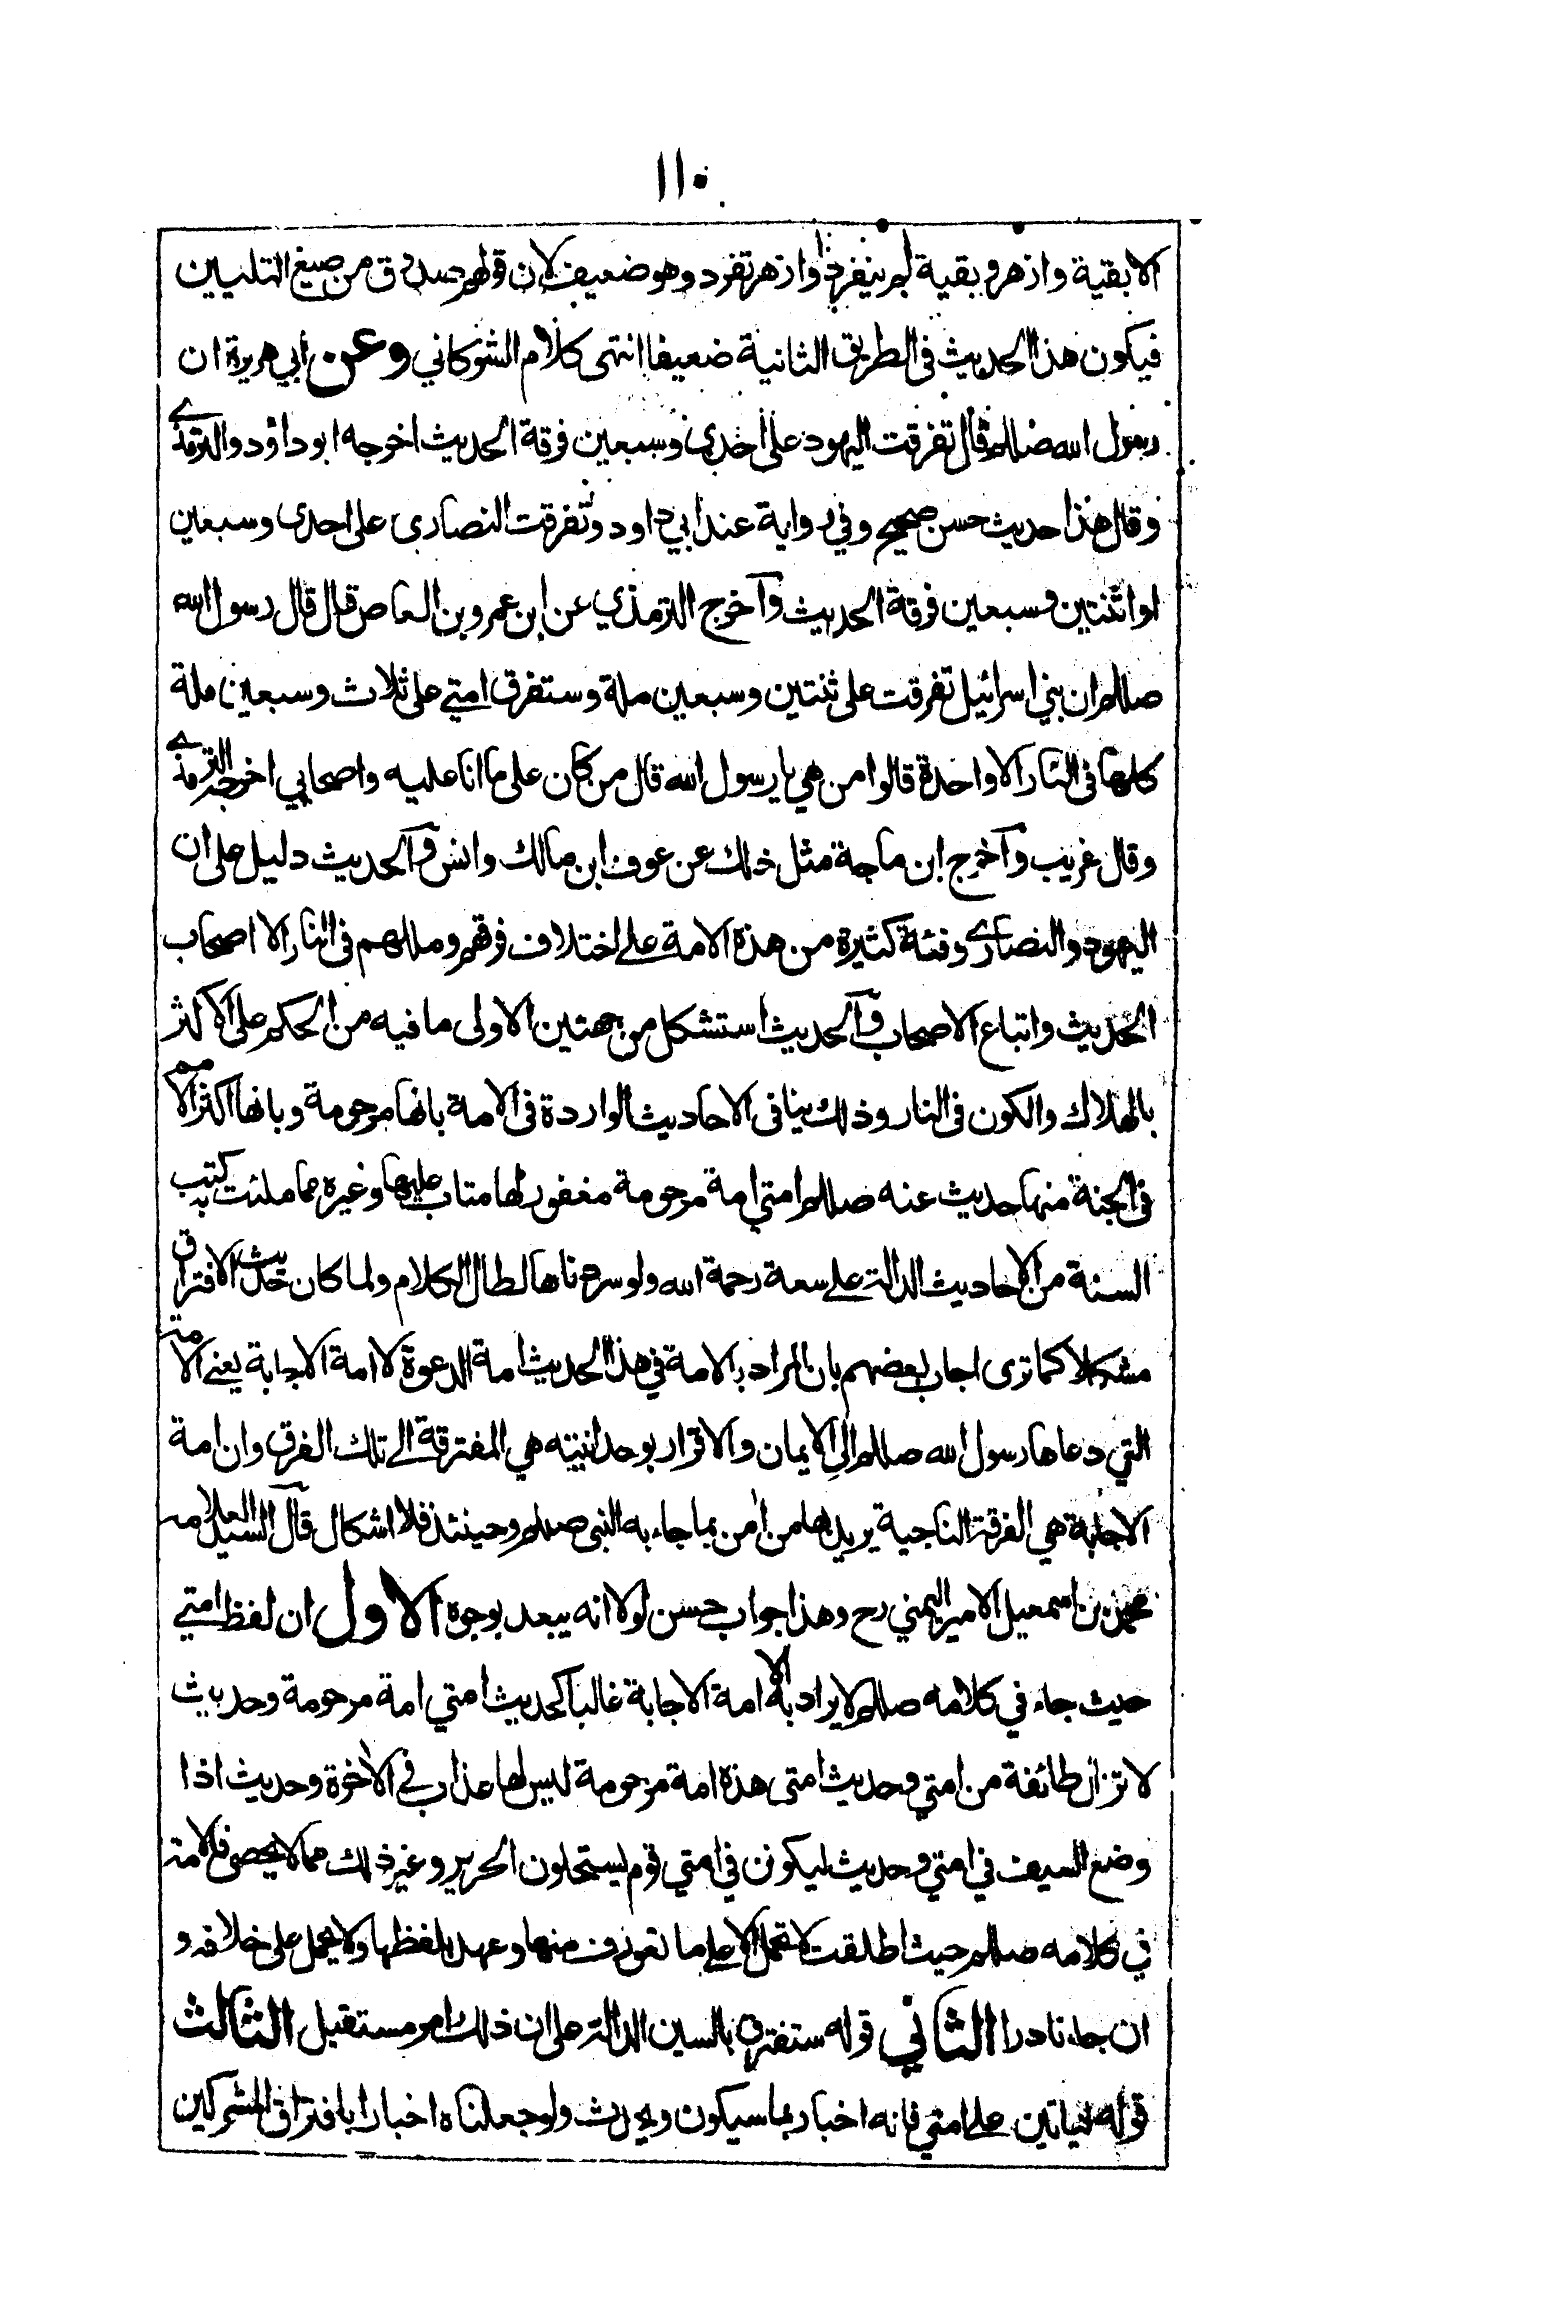 ١١٠
الا بقية وازهر وبقية لم ينفرد وازهر تفرد وهو ضعيف لان قولهم صدوق من صيغ التليين
فيكون هذا الحديث في الطريق الثانية ضعيفا انتهى كلام الشوكاني وعن ابي هريرة ان
رسول الله صللم قال تفرقت اليهود على احدى وسبعين فرقة الحديث اخرجه ابو داؤد والترمذي
وقال هذا حديث حسن صحيح وفي رواية عند ابي داود وتفرقت النصارى على احدى وسبعين
او اثنتين وسبعين فرقة الحديث وآخرج الترمذي عن ابن عمرو بن العاص قال قال رسول الله
صللم ان بني اسرائيل تفرقت على ثنتين وسبعين ملة وستفرق امتي على ثلاث وسبعين ملة
كلها في النار الا واحدة قالوا من هي يا رسول الله قال من كان على ما انا عليه واصحابي اخرجه الترمذي
وقال غريب وآخرج ابن ماجة مثل ذلك عن عوف ابن مالك وانس وآلحديث دليل على ان
اليهود والنصارى وفئة كثيرة من هذه الامة على اختلاف فرقهم ومللهم في النار الا اصحاب
الحديث واتباع الاصحاب وآلحديث استشكل من جهتين الاولى ما فيه من الحكم على الاكثر
بالهلاك والكون في النار وذلك ينافي الاحاديث الواردة في الامة بانها مرحومة وبانها اكثر الامم
في الجنة منها حديث عنه صللم امتي امة مرحومة مغفور لها متاب عليها وغيره مما ملئت به كتب
السنة من الاحاديث الدالة على سعة رحمة الله ولو سردناها لطال الكلام ولما كان حديث الافتراق
مشكلا كما ترى اجاب بعضهم بان المراد بالامة في هذا الحديث امة الدعوة لا امة الاجابة يعني الامة
التي دعاها رسول الله صللم الى الايمان والاقرار بوحدانيته هي المفترقة الى تلك الفرق وان امة
الاجابة هي الفرقة الناجية يريد بها من اٰمن بما جاء به النبي صللم وحينئذ فلا اشكال قآل السيد العلامة
محمد بن اسمعيل الامير اليمني رح وهذا جواب حسن لولا انه يبعد بوجوه الاول ان لفظ امتي
حيث جاء في كلامه صللم لا يراد به الا امة الاجابة غالبا كحديث امتي امة مرحومة وحديث
لا تزال طائفة من امتي وحديث امتي هذه امة مرحومة ليس لها عذاب في الاٰخرة وحديث اذا
وضع السيف في امتي وحديث ليكونن في امتي قوم يستحلون الحرير وغير ذلك مما لا يحصى فالامة
في كلامه صللم حيث اطلقت لا تحمل الا على ما تعورف منها وعهد بلفظها ولا يحمل على خلافه و
ان جاء نادرا الثاني قوله ستفترق بالسين الدالة على ان ذلك امر مستقبل الثالث
قوله لياتين على امتي فانه اخبار بما سيكون ويحدث ولو جعلناه اخبارا بافتراق المشركين